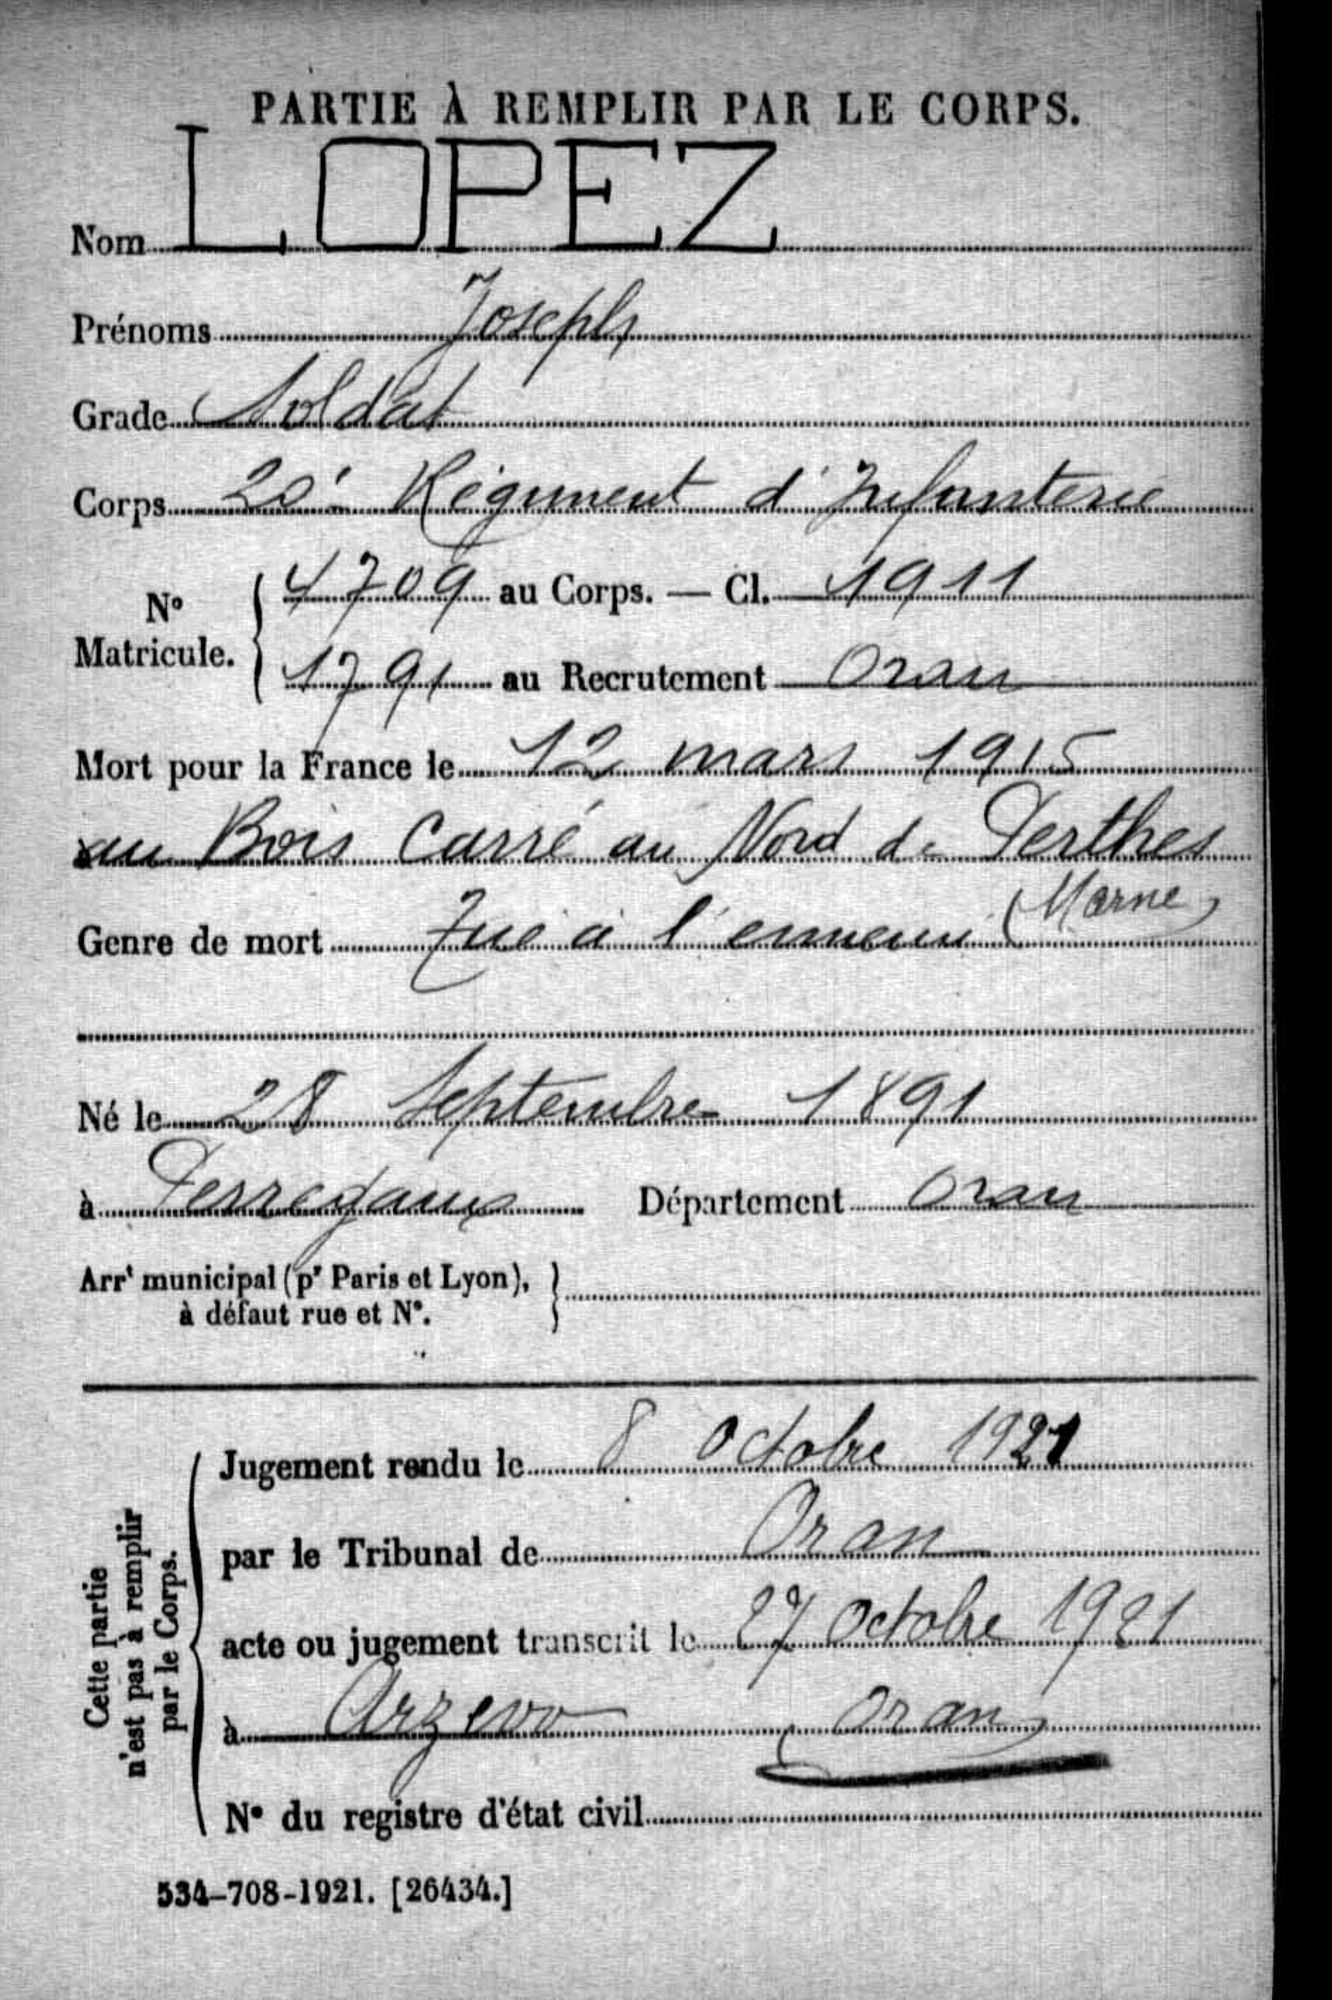 PARTIE À REMPLIR PAR LE CORPS.
Nom LOPEZ
Prénoms Joseph
Grade Soldat
Corps 20e Régiment d'Infanterie
N° Matricule. 4709 au Corps. — Cl. 1911
1791 au Recrutement Oran
Mort pour la France le 12 mars 1915
au Bois Carré au Nord de Perthes
(Marne)
Genre de mort Tué à l'ennemi
Né le 28 Septembre 1891
à Perregaux Département Oran
Arrt municipal (pr Paris et Lyon),
à défaut rue et N°.
Cette partie
n'est pas à remplir
par le Corps.
Jugement rendu le 8 Octobre 1921
par le Tribunal de Oran
acte ou jugement transcrit le 27 Octobre 1921
à Arzew (Oran)
N° du registre d'état civil
534-708-1921. [26434.]